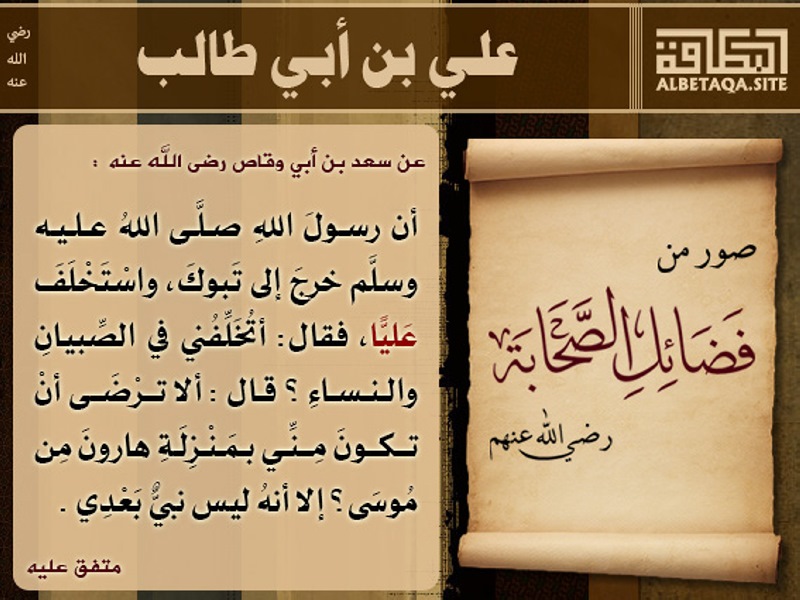 علي بن أبي طالب
رضي
الله
عنه
البطاقة
ALBETAQA.SITE
صور من
فَضَائِلِ الصَّحَابَة
رضي الله عنهم
عن سعد بن أبي وقاص رضى اللَّه عنه :
أن رسولَ اللهِ صلَّى اللهُ عليه
وسلَّم خرجَ إلى تَبوكَ، واسْتَخْلَفَ
عَليًّا، فقال: أتُخَلِّفُني في الصِّبيانِ
والنساءِ ؟ قال : ألا تَرْضَى أنْ
تكونَ مِنِّي بمَنْزِلَةِ هارونَ مِن
مُوسَى؟ إلا أنهُ ليس نبيٌّ بَعْدِي .
متفق عليه